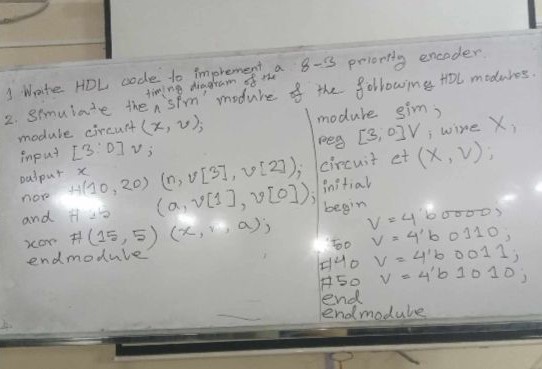 1 Write HDL code to implement a 8-3 priority encoder.
2. Simulate the timing diagram of the sim' module of the following HDL modules.
module circuit (x, v);
input [3:0] v;
output x
nor #(10,20) (n, v[3], v[2]);
and # (a, v[1], v[0]);
xor #(15,5) (x, , a);
endmodule
module sim;
reg [3,0] V; wire X;
circuit ct (X, V);
initial
begin
V = 4'b0000;
#60 V = 4'b 0110;
#40 V = 4'b 0011;
#50 V = 4'b 1010;
end
endmodule